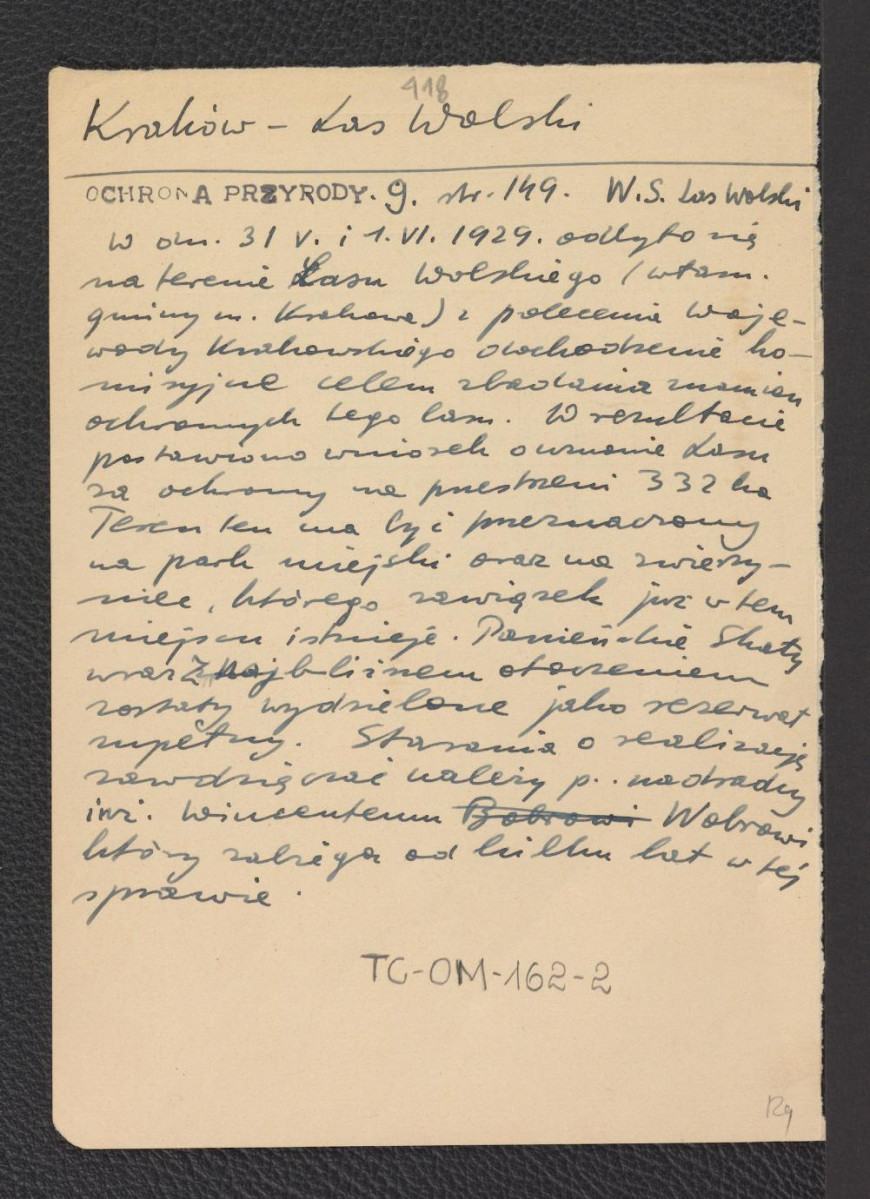 418
Kraków – Las Wolski
OCHRONA PRZYRODY. 9. str. 149. W.S. Las Wolski
W dn. 31 V. i 1. VI. 1929. odbyto się
na terenie Lasu Wolskiego (własn.
gminy m. Krakowa) z polecenia Woje-
wody Krakowskiego dochodzenie ko-
misyjne celem zbadania znamion
ochronnych tego lasu. W rezultacie
postawiono wniosek o uznanie Lasu
za ochronny na przestrzeni 332 ha
Teren ten ma być przeznaczony
na park miejski oraz na zwierzy-
niec, którego zawiązek już w tem
miejscu istnieje. Panieńskie Skały
wraz z najbliższem otoczeniem
zostały wydzielone jako rezerwat
zupełny. Starania o realizację
zawdzięczać należy p. nadradcy
inż. Wincentemu Bobrowi Wobrowi
który zabiega od kilku lat w tej
sprawie.
TC-OM-162-2